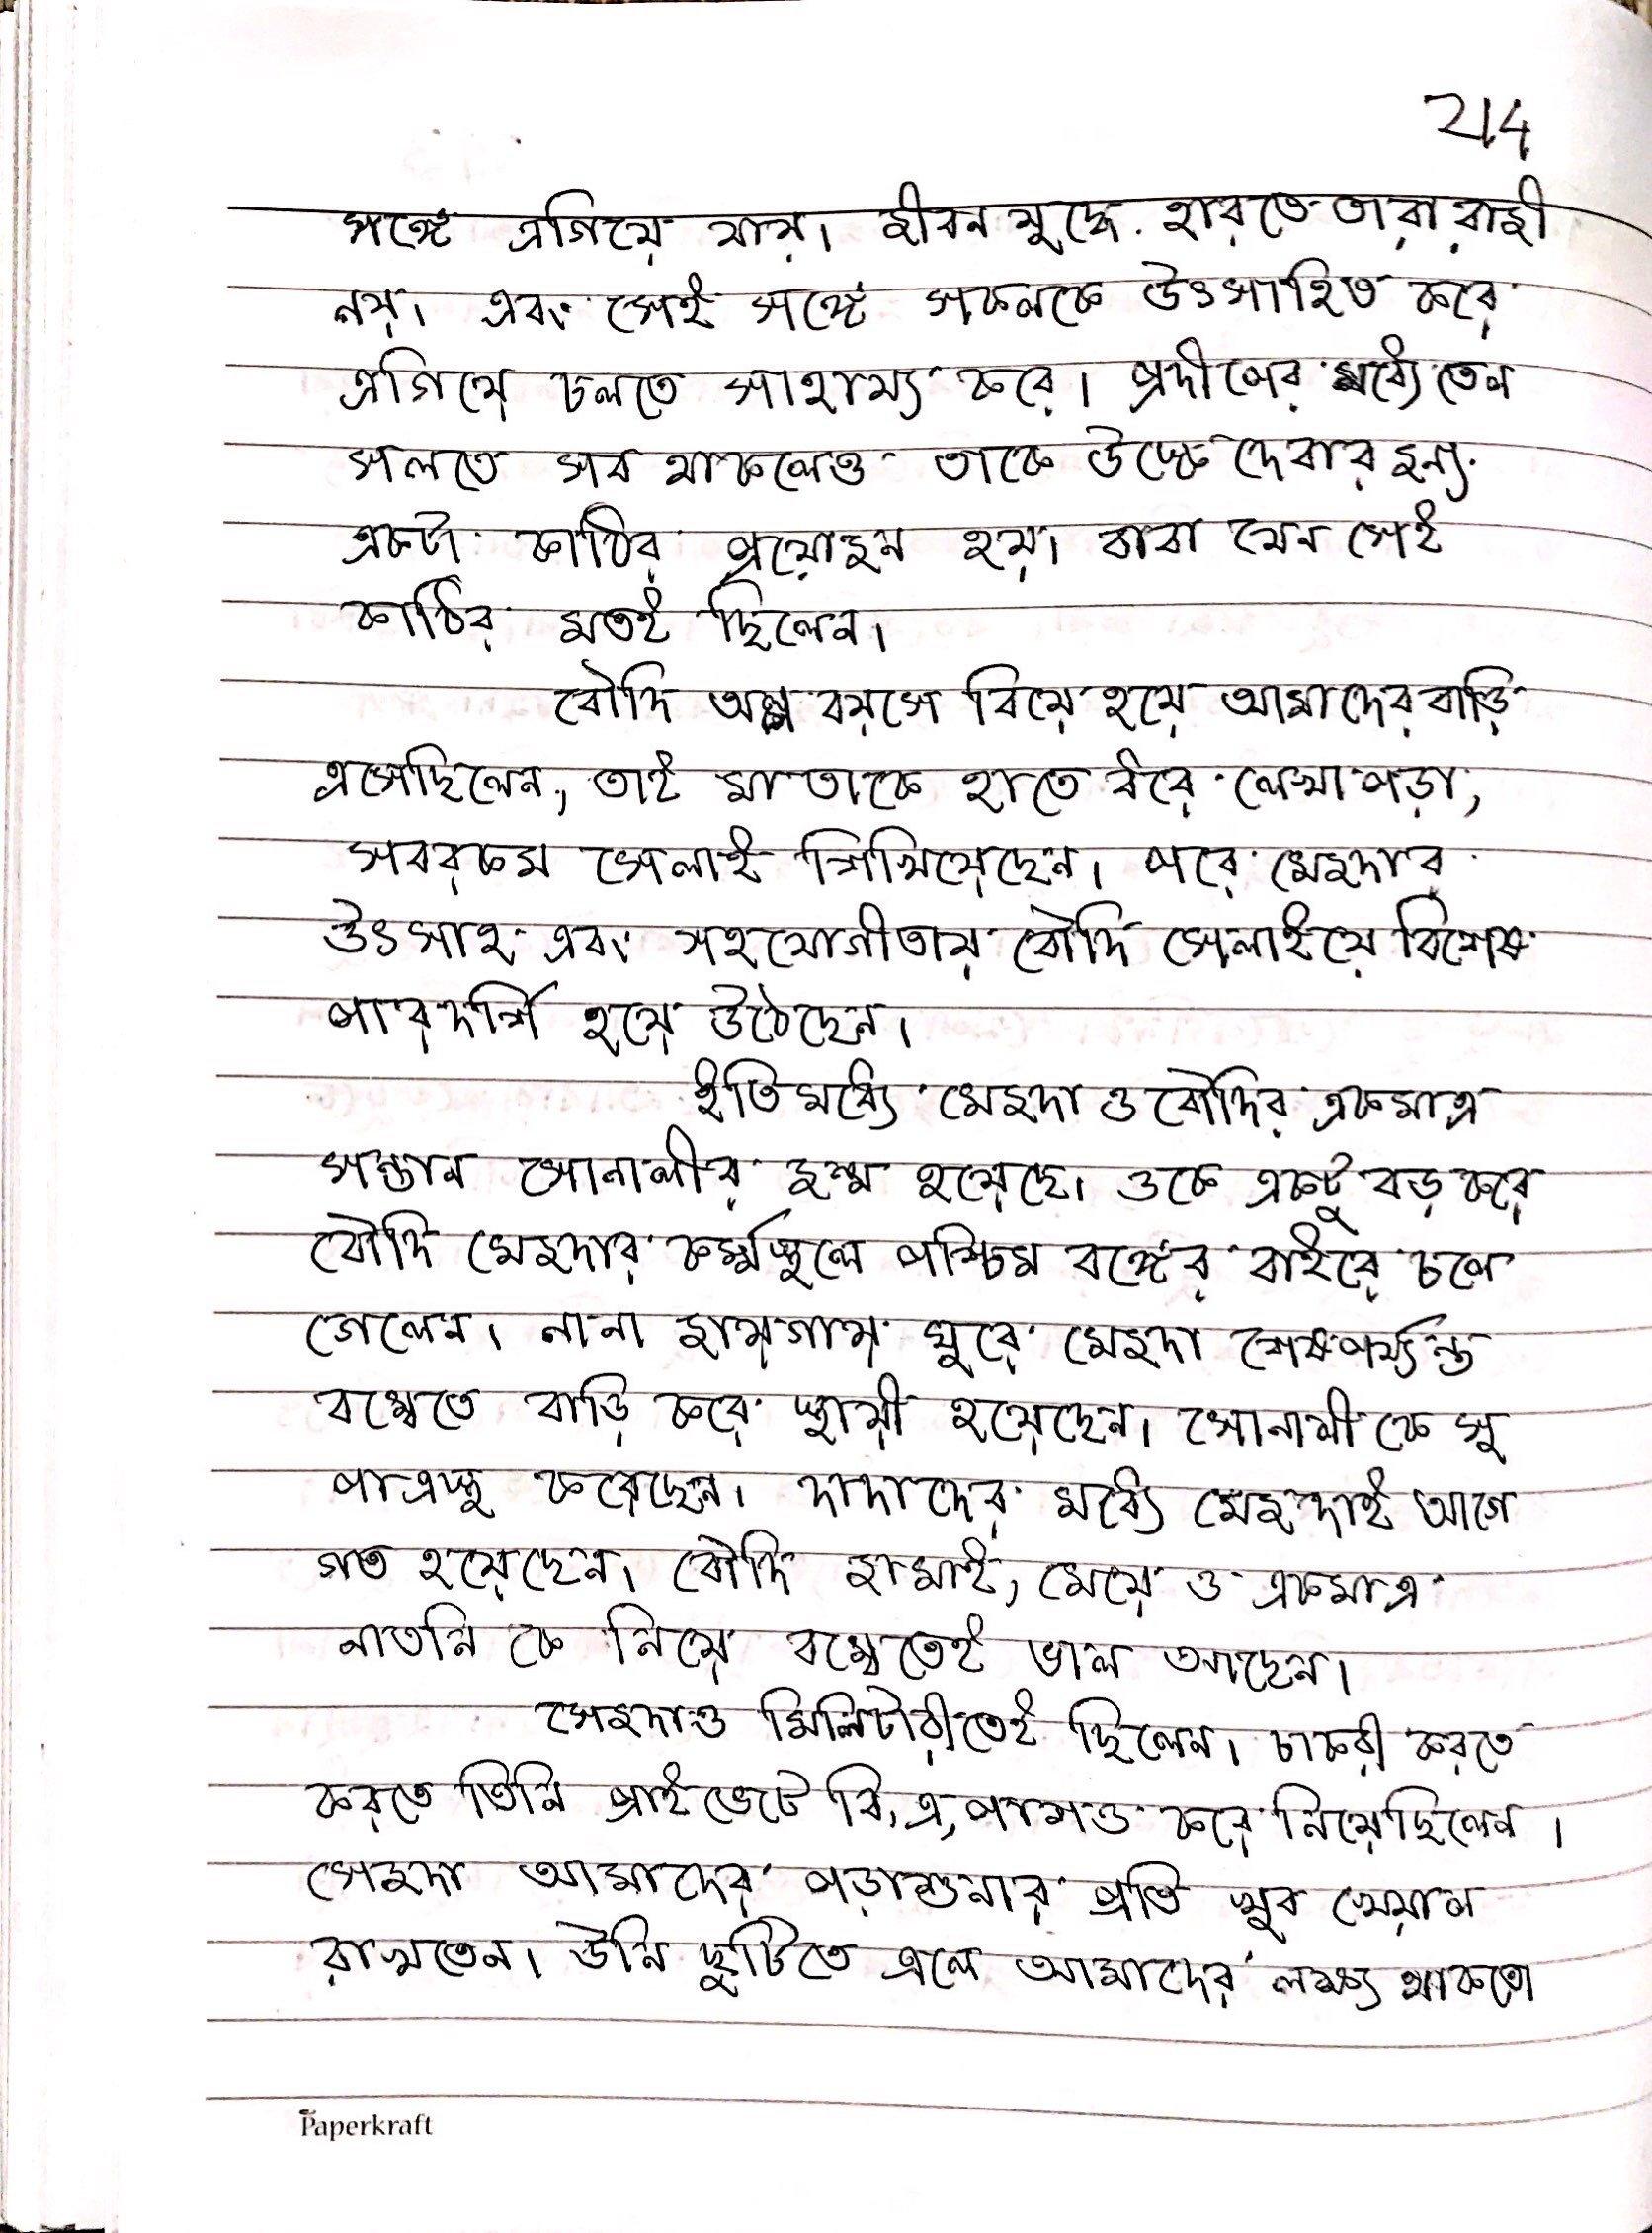 214
সঙ্গে এগিয়ে যায়। জীবন যুদ্ধে হারতে তারা রাজী
নয়। এবং সেই সঙ্গে সকলকে উৎসাহিত করে
এগিয়ে চলতে সাহায্য করে। প্রদীপের মধ্যে তেল
সলতে সব থাকলেও তাকে উস্কে দেবার জন্য
একটা কাঠির প্রয়োজন হয়। বাবা যেন সেই
কাঠির মতই ছিলেন।
বৌদি অল্প বয়সে বিয়ে হয়ে আমাদের বাড়ি
এসেছিলেন, তাই মা তাকে হাতে ধরে লেখাপড়া,
সবরকম সেলাই শিখিয়েছেন। পরে মেজদার
উৎসাহ এবং সহযোগীতায় বৌদি সেলাইয়ে বিশেষ
পারদর্শি হয়ে উঠেছেন।
ইতিমধ্যে মেজদা ও বৌদির একমাত্র
সন্তান সোনালীর জন্ম হয়েছে। ওকে একটু বড় করে
বৌদি মেজদার কর্ম্মস্থলে পশ্চিম বঙ্গের বাইরে চলে
গেলেন। নানা জায়গায় ঘুরে মেজদা শেষপর্য্যন্ত
বম্বেতে বাড়ি করে স্থায়ী হয়েছেন। সোনালী কে সু
পাত্রস্থ করেছেন। দাদাদের মধ্যে মেজদাই আগে
গত হয়েছেন। বৌদি জামাই, মেয়ে ও একমাত্র
নাতনি কে নিয়ে বম্বেতেই ভাল আছেন।
সেজদাও মিলিটারীতেই ছিলেন। চাকরী করতে
করতে তিনি প্রাইভেটে বি,এ,পাসও করে নিয়েছিলেন।
সেজদা আমাদের পড়াশুনার প্রতি খুব খেয়াল
রাখতেন। উনি ছুটিতে এলে আমাদের লক্ষ্য থাকতো
Paperkraft